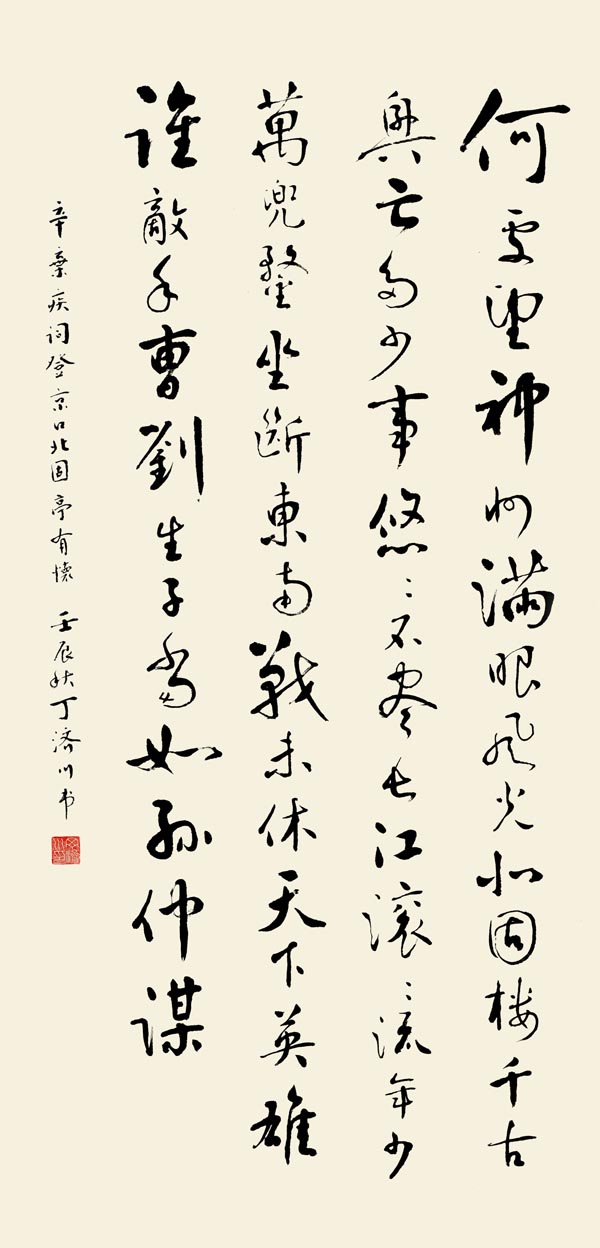 何處望神州滿眼風光北固樓千古
興亡多少事悠〻不盡長江滾〻流年少
萬兜鍪坐斷東南戰未休天下英雄
誰敵手曹劉生子當如孫仲謀
辛棄疾词登京口北固亭有懷 壬辰秋丁濟川书